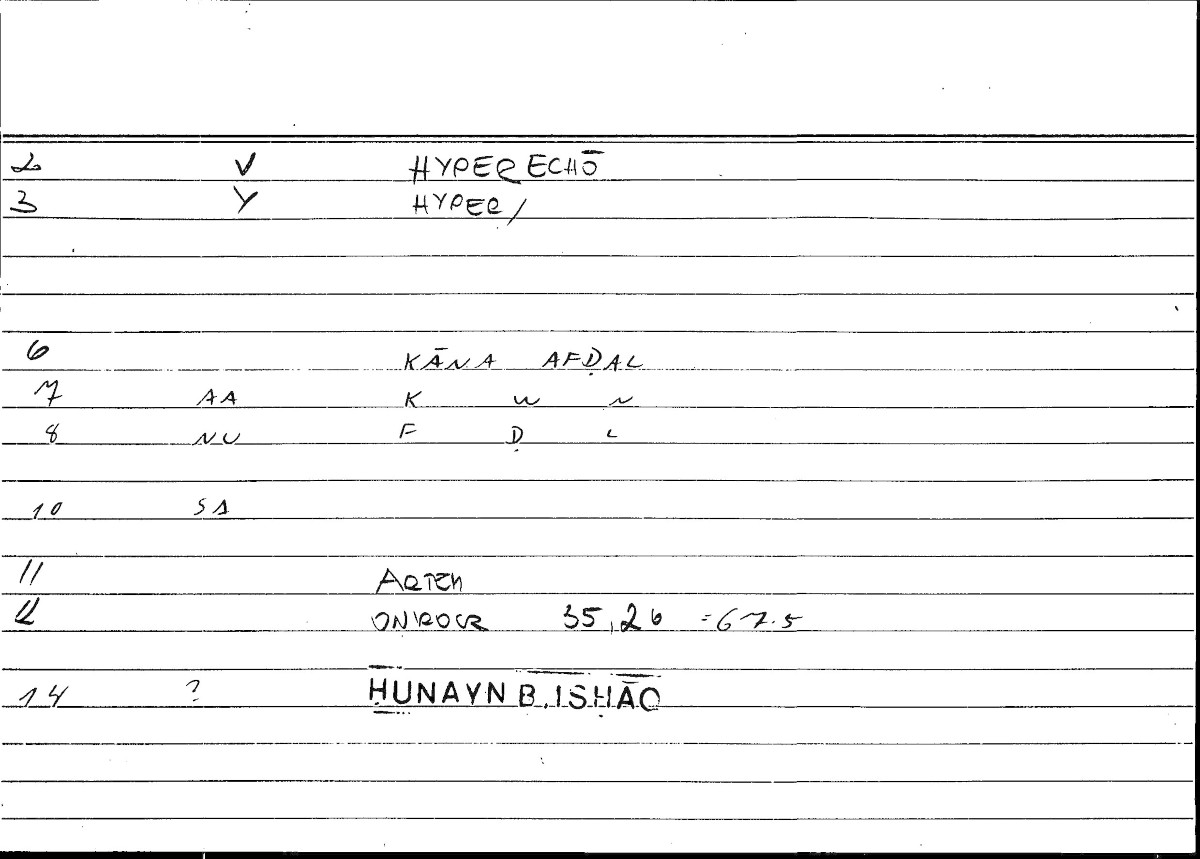 2 V HYPERECHŌ
3 Y HYPER/
6 KĀNA AFḌAL
7 AA K W N
8 NU F Ḍ L
10 SA
11 ARTEM
12 ONIROCR 35,26 =67.5
14 ? ḤUNAYN B. ISḤĀQ